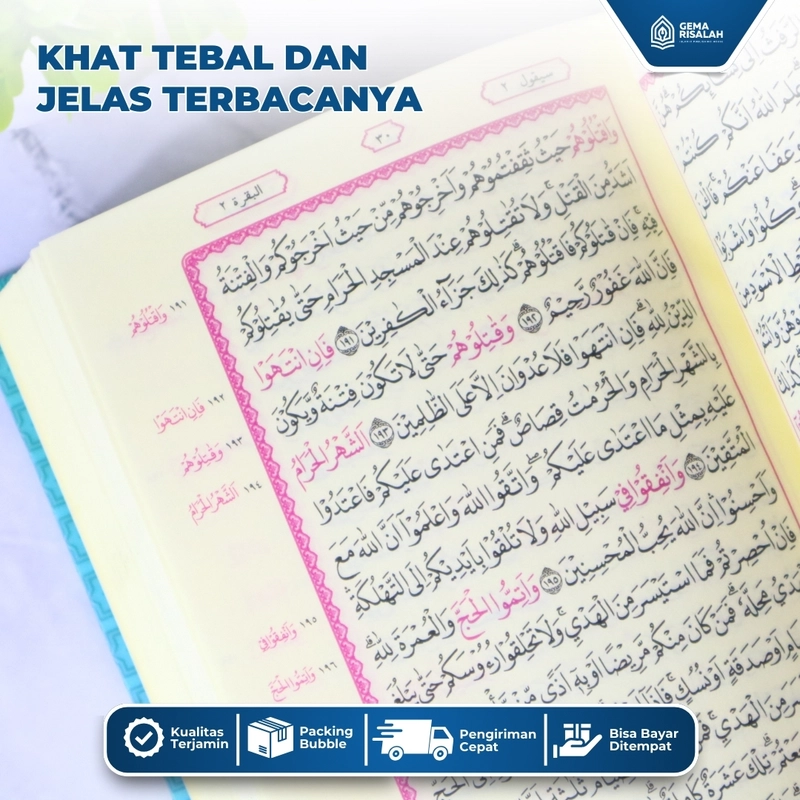 KHAT TEBAL DAN
JELAS TERBACANYA
GEMA
RISALAH
سيقول ٢
٣٠
البقرة ٢
وَاقْتُلُوْهُمْ حَيْثُ ثَقِفْتُمُوْهُمْ وَاَخْرِجُوْهُمْ مِّنْ حَيْثُ اَخْرَجُوْكُمْ وَالْفِتْنَةُ
اَشَدُّ مِنَ الْقَتْلِ ۚ وَلَا تُقٰتِلُوْهُمْ عِنْدَ الْمَسْجِدِ الْحَرَامِ حَتّٰى يُقٰتِلُوْكُمْ
فِيْهِ ۚ فَاِنْ قٰتَلُوْكُمْ فَاقْتُلُوْهُمْ ۗ كَذٰلِكَ جَزَاۤءُ الْكٰفِرِيْنَ ١٩١ فَاِنِ انْتَهَوْا
فَاِنَّ اللّٰهَ غَفُوْرٌ رَّحِيْمٌ ١٩٢ وَقٰتِلُوْهُمْ حَتّٰى لَا تَكُوْنَ فِتْنَةٌ وَّيَكُوْنَ
الدِّيْنُ لِلّٰهِ ۗ فَاِنِ انْتَهَوْا فَلَا عُدْوَانَ اِلَّا عَلَى الظّٰلِمِيْنَ ١٩٣ اَلشَّهْرُ الْحَرَامُ
بِالشَّهْرِ الْحَرَامِ وَالْحُرُمٰتُ قِصَاصٌ ۗ فَمَنِ اعْتَدٰى عَلَيْكُمْ فَاعْتَدُوْا
عَلَيْهِ بِمِثْلِ مَا اعْتَدٰى عَلَيْكُمْ ۖ وَاتَّقُوا اللّٰهَ وَاعْلَمُوْٓا اَنَّ اللّٰهَ مَعَ
الْمُتَّقِيْنَ ١٩٤ وَاَنْفِقُوْا فِيْ سَبِيْلِ اللّٰهِ وَلَا تُلْقُوْا بِاَيْدِيْكُمْ اِلَى التَّهْلُكَةِ
وَاَحْسِنُوْا ۛ اِنَّ اللّٰهَ يُحِبُّ الْمُحْسِنِيْنَ ١٩٥ وَاَتِمُّوا الْحَجَّ وَالْعُمْرَةَ لِلّٰهِ ۗ
فَاِنْ اُحْصِرْتُمْ فَمَا اسْتَيْسَرَ مِنَ الْهَدْيِ ۚ وَلَا تَحْلِقُوْا رُءُوْسَكُمْ حَتّٰى يَبْلُغَ
الْهَدْيُ مَحِلَّهٗ ۗ فَمَنْ كَانَ مِنْكُمْ مَّرِيْضًا اَوْ بِهٖٓ اَذًى مِّنْ
اَوْ صَدَقَةٍ اَوْ نُسُكٍ
مِنَ الْهَدْيِ ۚ فَمَنْ
تِلْكَ عَشَرَةٌ
١٩١ وَاقْتُلُوْهُمْ
١٩٢ فَاِنِ انْتَهَوْا
١٩٣ وَقٰتِلُوْهُمْ
١٩٤ اَلشَّهْرُ الْحَرَامُ
١٩٥ وَاَنْفِقُوْا فِيْ
١٩٦ وَاَتِمُّوا الْحَجَّ
Kualitas
Terjamin
Packing
Bubble
Pengiriman
Cepat
Bisa Bayar
Ditempat